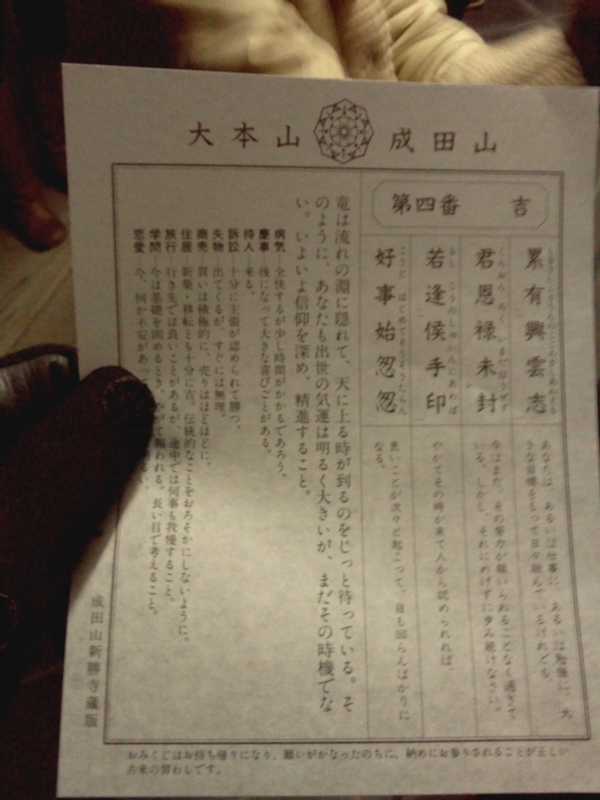 大本山 成田山
第四番 吉
累有興雲志
あなたは、あるいは仕事に、あるいは勉強に、大きな目標をもって日々励んでいるけれども、
君恩禄未封
今はまだ、その努力が報いられることなく過ぎている。しかし、それにめげずに歩み続けなさい。
若逢侯手印
やがてその時が来て人から認められれば、
好事始忽忽
良いことが次々と起こって、目も回らんばかりになる。
竜は流れの淵に隠れて、天に上る時が到るのをじっと待っている。そ
のように、あなたも出世の気運は明るく大きいが、まだその時機でな
い。いよいよ信仰を深め、精進すること。
病気 全快するが少し時間がかかるであろう。
慶事 後になって大きな喜びごとがある。
待人 来る。
訴訟 十分に主張が認められて勝つ。
失物 出てくるが、すぐには無理。
商売 買いは積極的に、売りはほどほどに。
住居 新築・移転とも十分に吉。伝統的なことをおろそかにしないように。
旅行 行き先では良いことがあるが、途中では何事も我慢すること。
学問 今は基礎を固めるとき、やがて報われる。長い目で考えること。
恋愛 今、何か不安があって
成田山新勝寺蔵版
おみくじはお持ち帰りになり、願いがかなったのちに、納めにお参りされることが正しい
古来の習わしです。